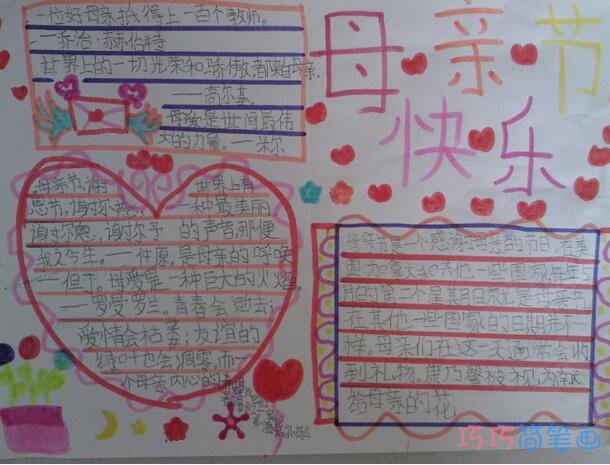 母亲节
快乐
一位好母亲抵得上一百个教师。
——乔治·赫伯特
世界上的一切光荣和骄傲,都来自母亲。
——高尔基。
母爱是世间最伟
大的力量。——米尔
母亲节,谢 世界上有
恩节,谢尔恩, 一种最美丽
谢尔恩,谢尔予 的声音,那便
我之今生。——仟原 是母亲的呼唤
——但丁。母爱是一种巨大的火焰。
——罗曼罗兰。青春会逝去;
爱情会枯萎;友谊的
绿叶也会凋零,而一
个母亲内心的希望
母亲节是一个感谢母亲的节日。在美
国、加拿大和其他一些国家,每年5
月的第二个星期日就是母亲节
在其他一些国家的日期并不一
样。母亲们在这一天通常会收
到礼物。康乃馨被视为献
给母亲的花
巧巧简笔画